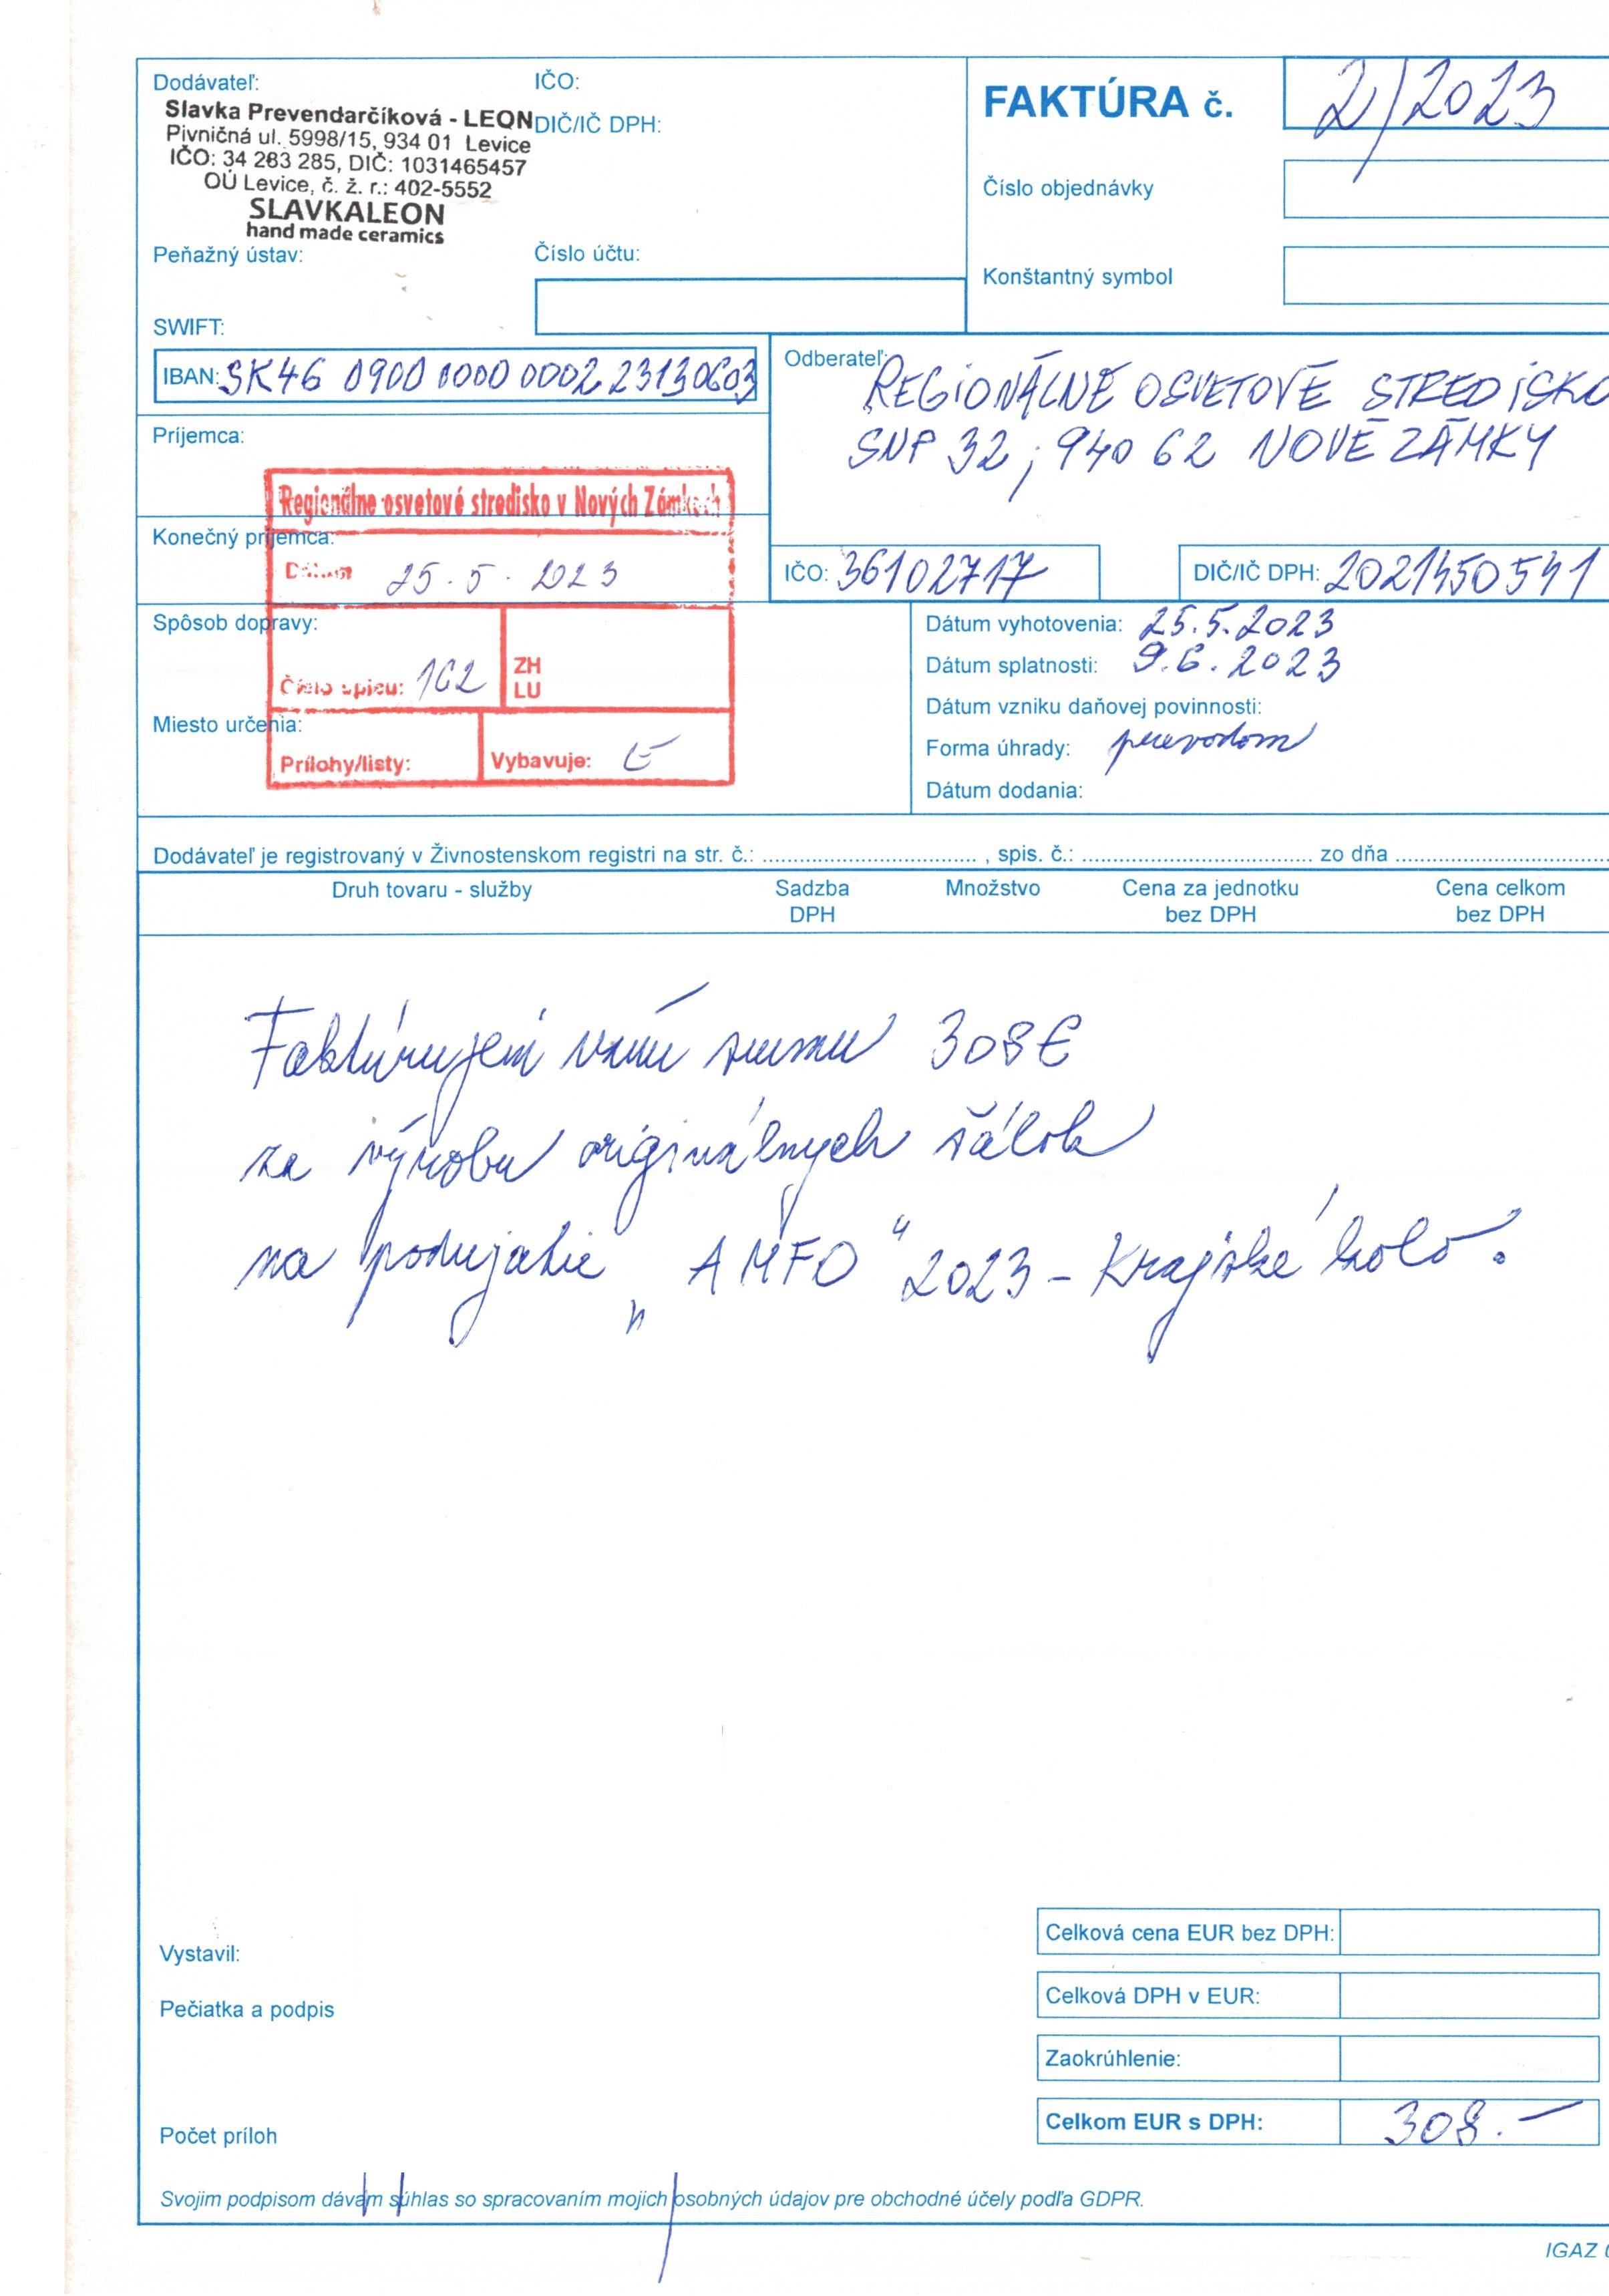 Dodávateľ:
IČO:
Slavka Prevendarčíková - LEON
DIČ/IČ DPH:
Pivničná ul. 5998/15, 934 01 Levice
IČO: 34 283 285, DIČ: 1031465457
OÚ Levice, č. ž. r.: 402-5552
SLAVKALEON
hand made ceramics
FAKTÚRA č. 2/2023
Číslo objednávky
Konštantný symbol
Peňažný ústav:
Číslo účtu:
SWIFT:
IBAN: SK46 0900 0000 0002 2313 0603
Odberateľ:
REGIONÁLNE OSVETOVÉ STREDISKO
SNP 32, 940 62 NOVÉ ZÁMKY
IČO: 36102717
DIČ/IČ DPH: 2021450541
Príjemca:
Regionálne osvetové stredisko v Nových Zámkoch
Konečný príjemca:
Dátum 25.5.2023
Spôsob dopravy:
Číslo spisu: 162
ZH
LU
Miesto určenia:
Prílohy/listy:
Vybavuje:
Dátum vyhotovenia: 25.5.2023
Dátum splatnosti: 9.6.2023
Dátum vzniku daňovej povinnosti:
Forma úhrady: prevodom
Dátum dodania:
Dodávateľ je registrovaný v Živnostenskom registri na str. č.: , spis. č.: zo dňa
Druh tovaru - služby
Sadzba DPH
Množstvo
Cena za jednotku bez DPH
Cena celkom bez DPH
Faktúrujem vám sumu 308€
za výrobu originálnych šálok
na podujatie „AMFO“ 2023 - Krajské kolo.
Vystavil:
Pečiatka a podpis
Počet príloh
Celková cena EUR bez DPH:
Celková DPH v EUR:
Zaokrúhlenie:
Celkom EUR s DPH: 308.-
Svojim podpisom dávam súhlas so spracovaním mojich osobných údajov pre obchodné účely podľa GDPR.
IGAZ